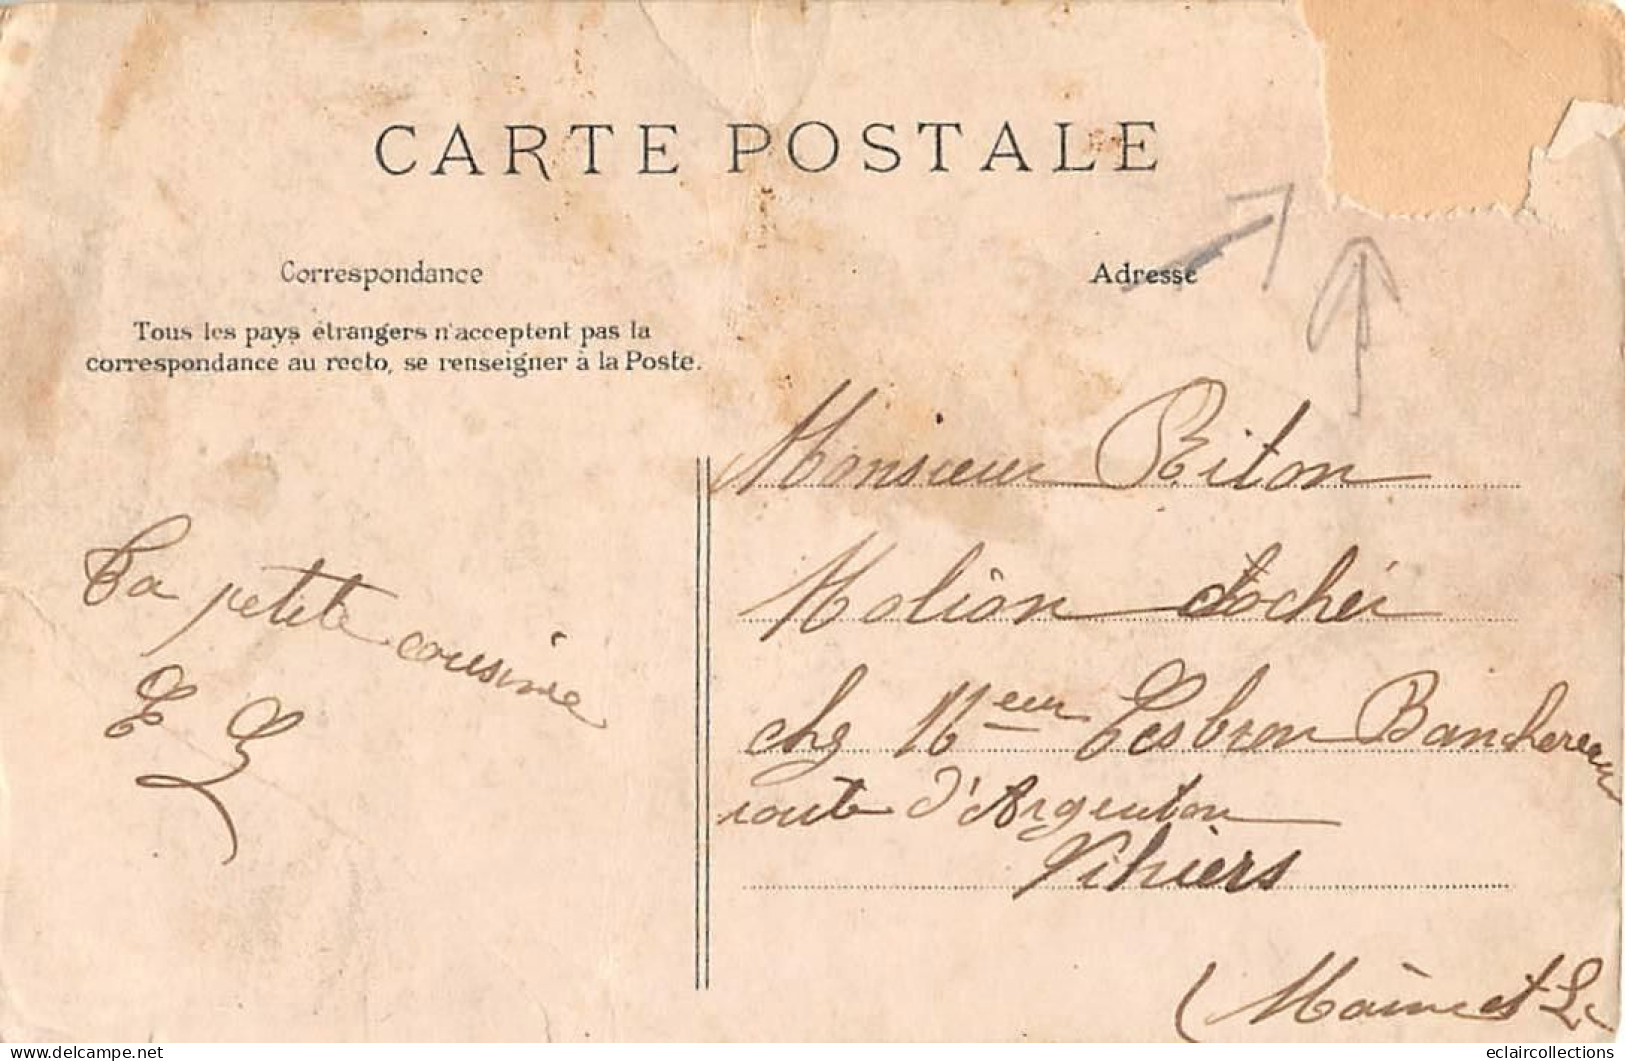 CARTE POSTALE
Correspondance
Adresse
Tous les pays étrangers n'acceptent pas la
correspondance au recto, se renseigner à la Poste.
Monsieur Riton
Ta petite cousine
chez Meur Lesbron Banchereau
route d'Argenton
Vihiers
(Maine et L
eclaircollections
© delcampe.net